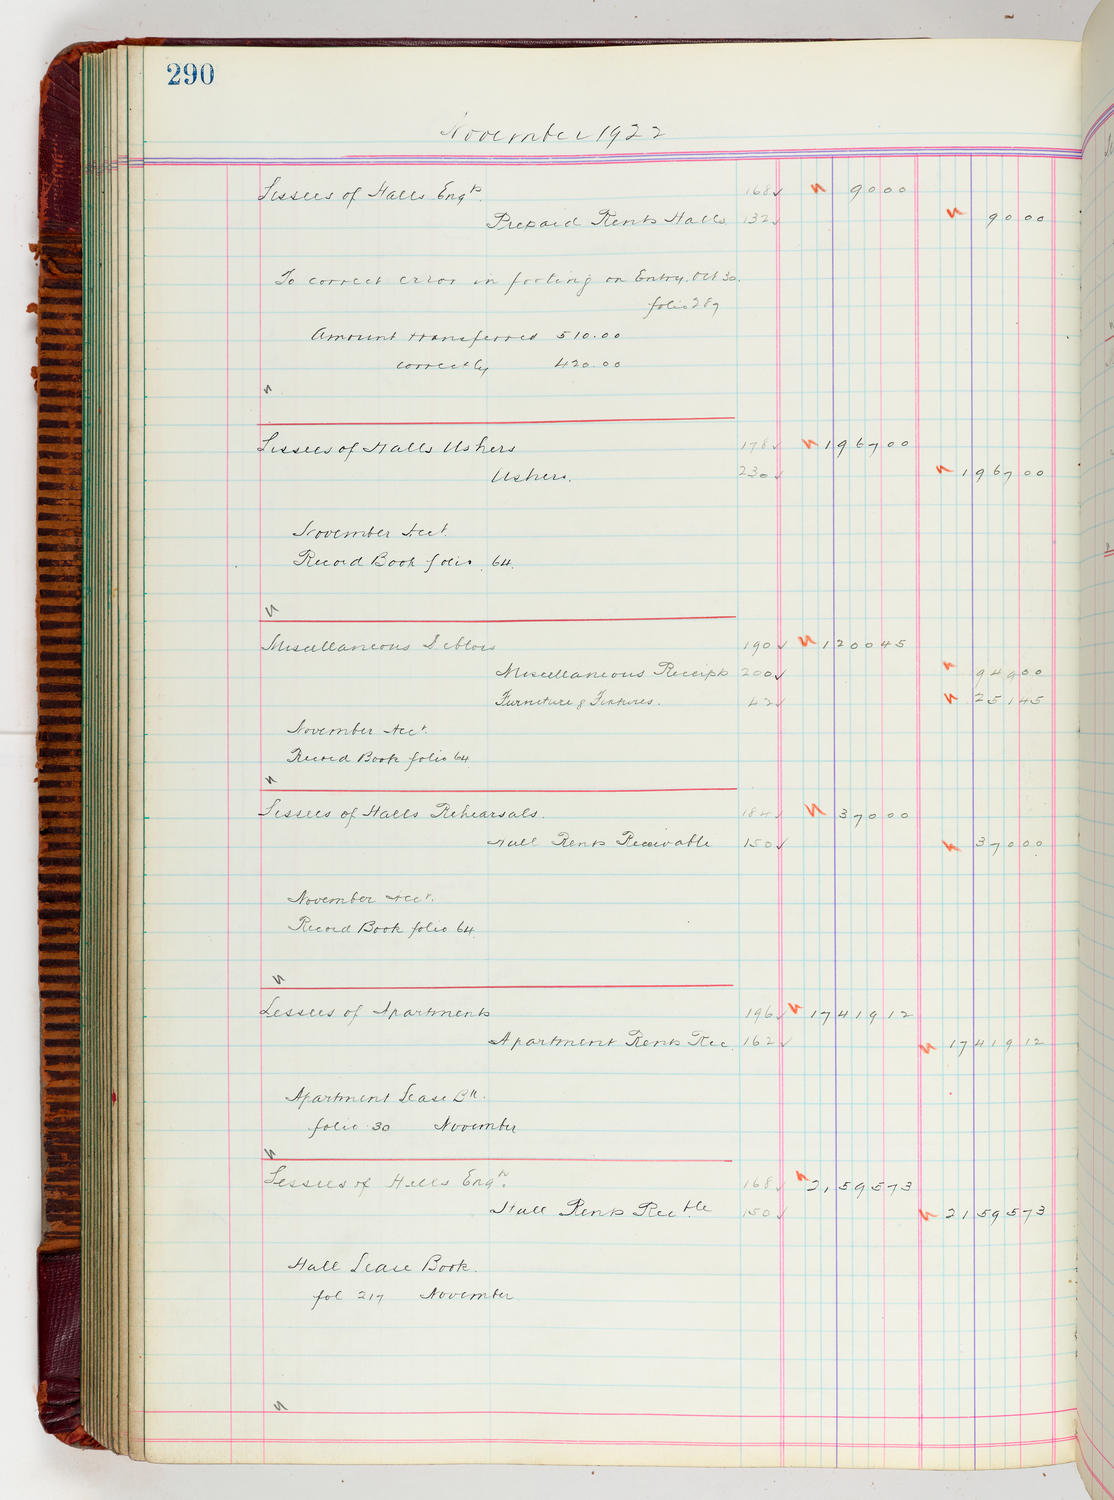 290
November 1922
Lessees of Halls Engts. 168✓ 90 00
Prepaid Rents Halls 132✓ 90 00
To correct error in footing on Entry. Oct 30.
folio 289
Amount transferred 510.00
correctly 420.00
Lessees of Halls Ushers 178✓ 1967 00
Ushers. 230✓ 1967 00
November Acct.
Record Book folio 64.
Miscellaneous Debtors 190✓ 1200 45
Miscellaneous Receipts 200✓ 949 00
Furniture & Fixtures. 42✓ 251 45
November Acct.
Record Book folio 64
Lessees of Halls Rehearsals. 184✓ 370 00
Hall Rents Receivable 150✓ 370 00
November Acct.
Record Book folio 64
Lessees of Apartments 196✓ 17419 12
Apartment Rents Rec. 162✓ 17419 12
Apartment Lease Bk.
folio 30 November
Lessees of Halls Engts. 168✓ 21,595 73
Hall Rents Recble 150✓ 21595 73
Hall Lease Book.
fol 217 November